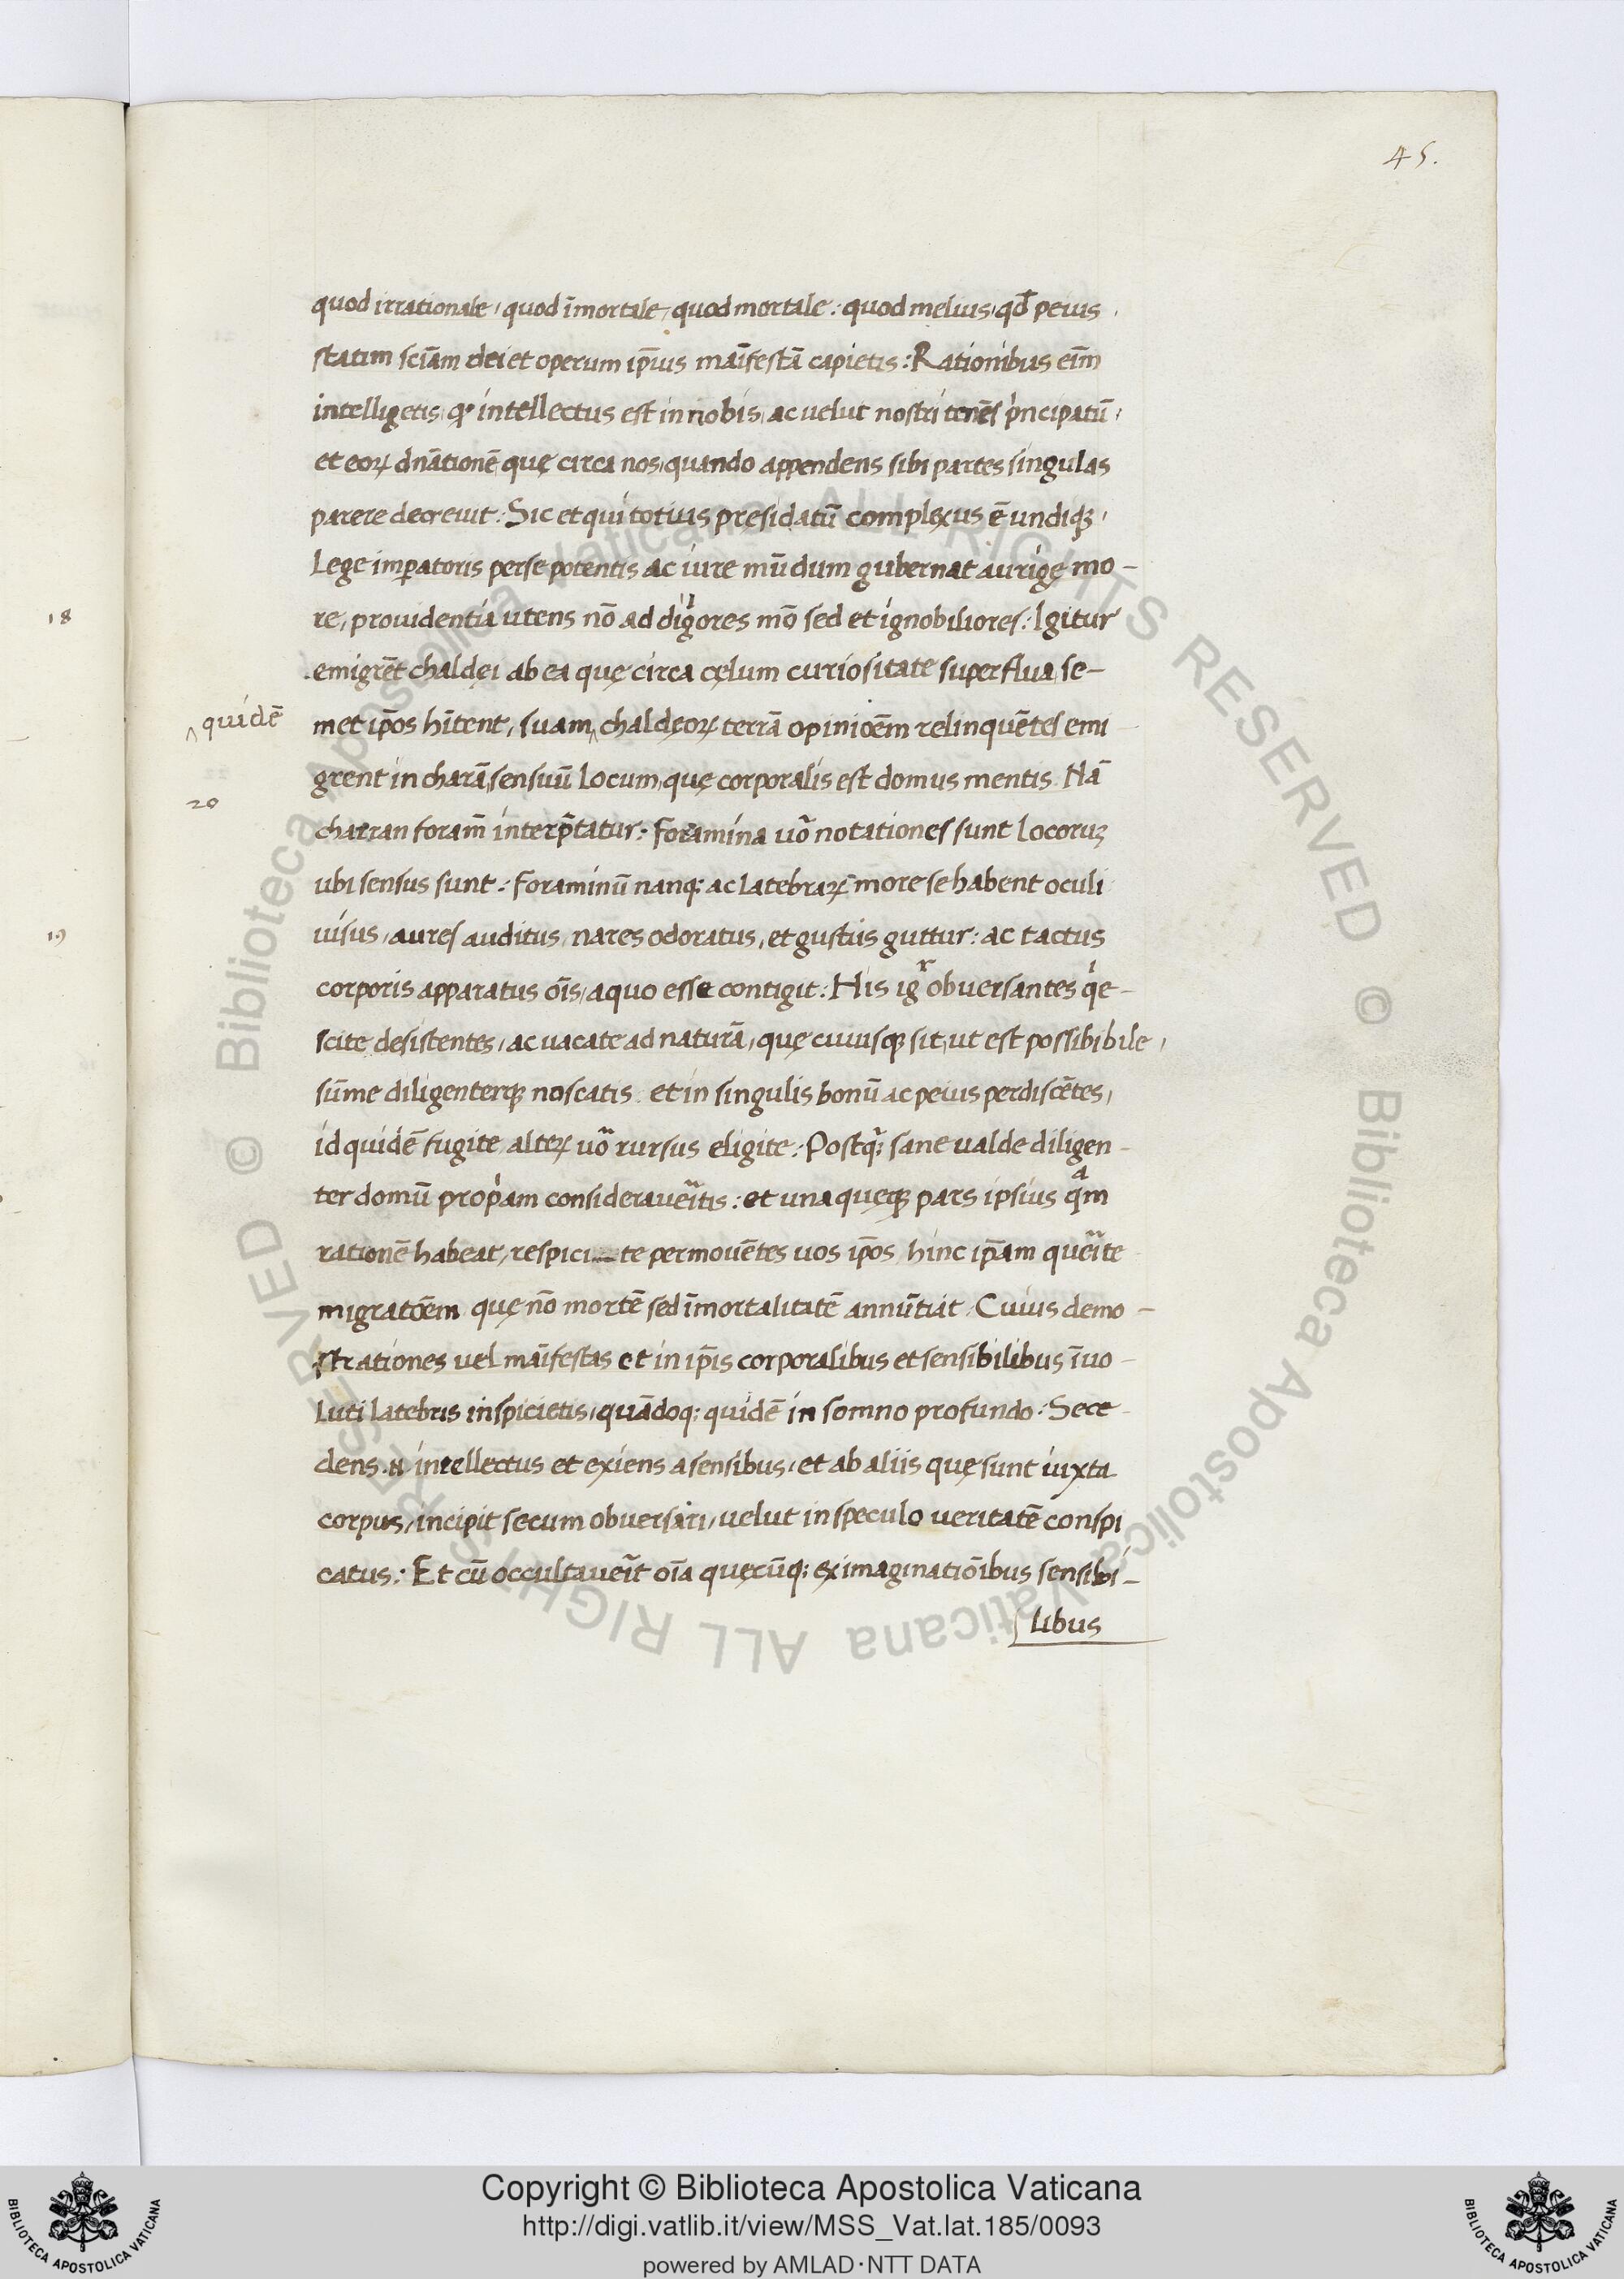 45.
quod irrationale, quod ĩmortale, quod mortale: quod melius, qđ peius,
statim sciãm dei et operum ip̃ius mãifestã capietis: Rationibus eĩm
intelligetis, ꝙ intellectus est in nobis, ac velut nostri tenẽs p̍ncipatũ,
et eoꝝ dñationẽ quę circa nos, quando appendens sibi partes singulas
parere decrevit: Sic et qui totius pręsidatũ complexus ẽ undiqꝫ,
Lege imꝑatoris per se potentis ac iure mũdum gubernat aurigę mo-
18
re, providentia utens nõ ad digi̍ores mõ sed et ignobiliores: Igitur
emigrẽt chaldęi ab ea quę circa cęlum curiositate superflua, se-
‸ quidẽ
met ip̃os hĩtent, suam ‸ chaldęoꝝ terrã opinioẽm relinquẽtes emi
grent in charã, sensuũ Locum, quę corporalis est domus mentis. Nã
20
charran foram̃ interp̃tatur: Foramina võ notationes sunt Locoruꝫ
ubi sensus sunt: Foraminũ nanqꝫ ac Latebraꝝ more se habent oculi
19
visus, aures auditus, nares odoratus, et gustus guttur: ac tactus
corporis apparatus oĩs, a quo esse contigit: His igr̃ obversantes q̍e-
scite desistentes, ac vacate ad naturã, quę cuiusqꝫ sit, ut est possibibile,
sũme diligenterqꝫ noscatis. et in singulis bonũ ac peius perdiscẽtes,
id quidẽ fugite, alteꝝ võ rursus eligite: Postq̃ꝫ sane valde diligen-
ter domũ prop̍am consideraveĩtis: et unaquęqꝫ pars ipsius q̃m
rationẽ habeat, respici__te permovẽtes vos ip̃os, hinc ip̃am queĩte
migratoẽm quę nõ mortẽ sed ĩmortalitatẽ annũtiat. Cuius demo-
strationes vel mãifestas et in ip̃is corporalibus et sensibilibus ĩvo-
Luti Latebris inspicietis, quãdoqꝫ quidẽ in somno profundo: Sece-
dens .n. intellectus et exiens a sensibus, et ab aliis quę sunt iuxta
corpus, incipit secum obversari, velut in speculo veritatẽ conspi
catus: Et cũ occultaveĩt oĩa quęcũqꝫ ex imaginatiõibus sensibi-
libus
Copyright © Biblioteca Apostolica Vaticana
http://digi.vatlib.it/view/MSS_Vat.lat.185/0093
powered by AMLAD·NTT DATA
BIBLIOTECA APOSTOLICA VATICANA
BIBLIOTECA APOSTOLICA VATICANA
© Biblioteca Apostolica Vaticana ALL RIGHTS RESERVED © Biblioteca Apostolica Vaticana ALL RIGHTS RESERVED